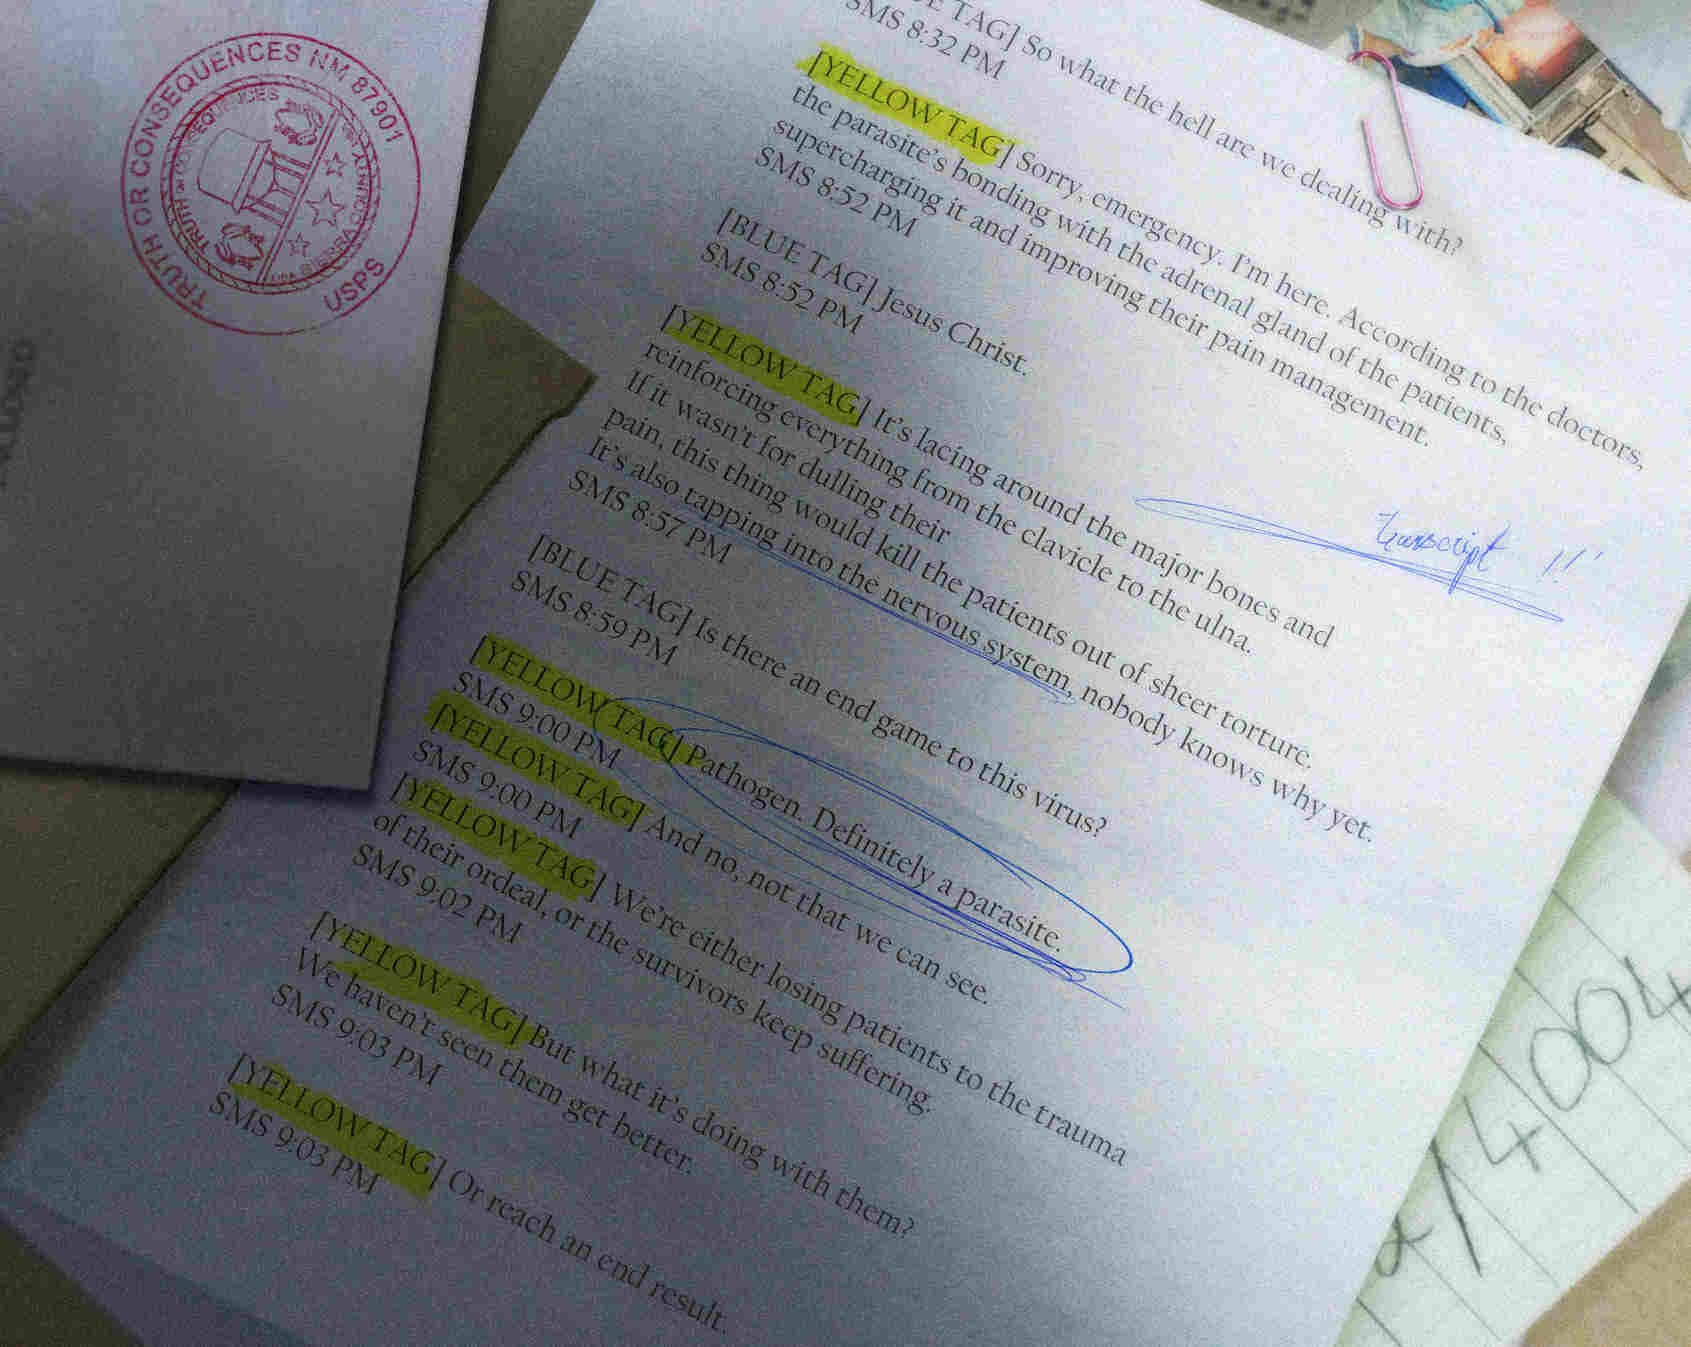 TRUTH OR CONSEQUENCES NM 87901
USPS
TRUTH OR CONSEQUENCES
SIERRA COUNTY
TAG] So what the hell are we dealing with?
SMS 8:32 PM
[YELLOW TAG] Sorry, emergency. I'm here. According to the doctors,
the parasite's bonding with the adrenal gland of the patients,
supercharging it and improving their pain management.
SMS 8:52 PM
[BLUE TAG] Jesus Christ.
SMS 8:52 PM
[YELLOW TAG] It's lacing around the major bones and
reinforcing everything from the clavicle to the ulna.
If it wasn't for dulling their
pain, this thing would kill the patients out of sheer torture.
It's also tapping into the nervous system, nobody knows why yet.
SMS 8:57 PM
transcript !!
[BLUE TAG] Is there an end game to this virus?
SMS 8:59 PM
[YELLOW TAG] Pathogen. Definitely a parasite.
SMS 9:00 PM
[YELLOW TAG] And no, not that we can see.
SMS 9:00 PM
[YELLOW TAG] We're either losing patients to the trauma
of their ordeal, or the survivors keep suffering.
SMS 9:02 PM
[YELLOW TAG] But what it's doing with them?
We haven't seen them get better.
SMS 9:03 PM
[YELLOW TAG] Or reach an end result.
SMS 9:03 PM
/4004